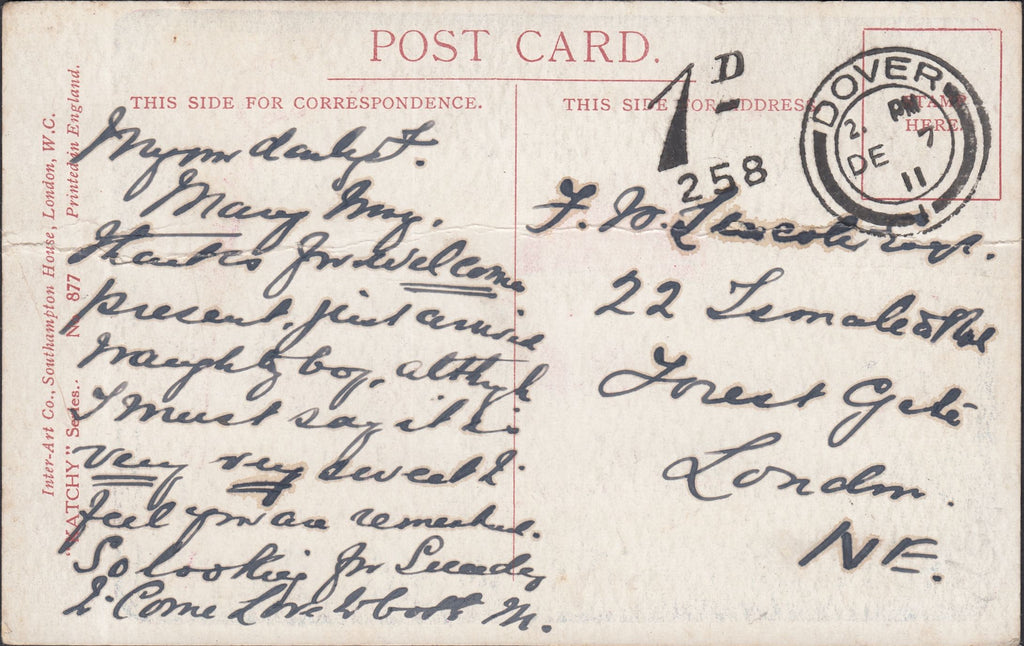 POST CARD.
THIS SIDE FOR CORRESPONDENCE.
THIS SIDE FOR ADDRESS
STAMP
HERE.
1D
258
DOVER
2. PM
DE 7
11
1
Inter-Art Co., Southampton House, London, W.C.
"KATCHY" Series. No. 877 Printed in England.
My own
Many
thanks for welcome
present, just arrived
naughty boy, although
I must say it is
very very sweet I
feel you are
So looking for Sunday
to Come Love to both M.
F. W. Esqr.
22
Forest Gate
London.
NE.